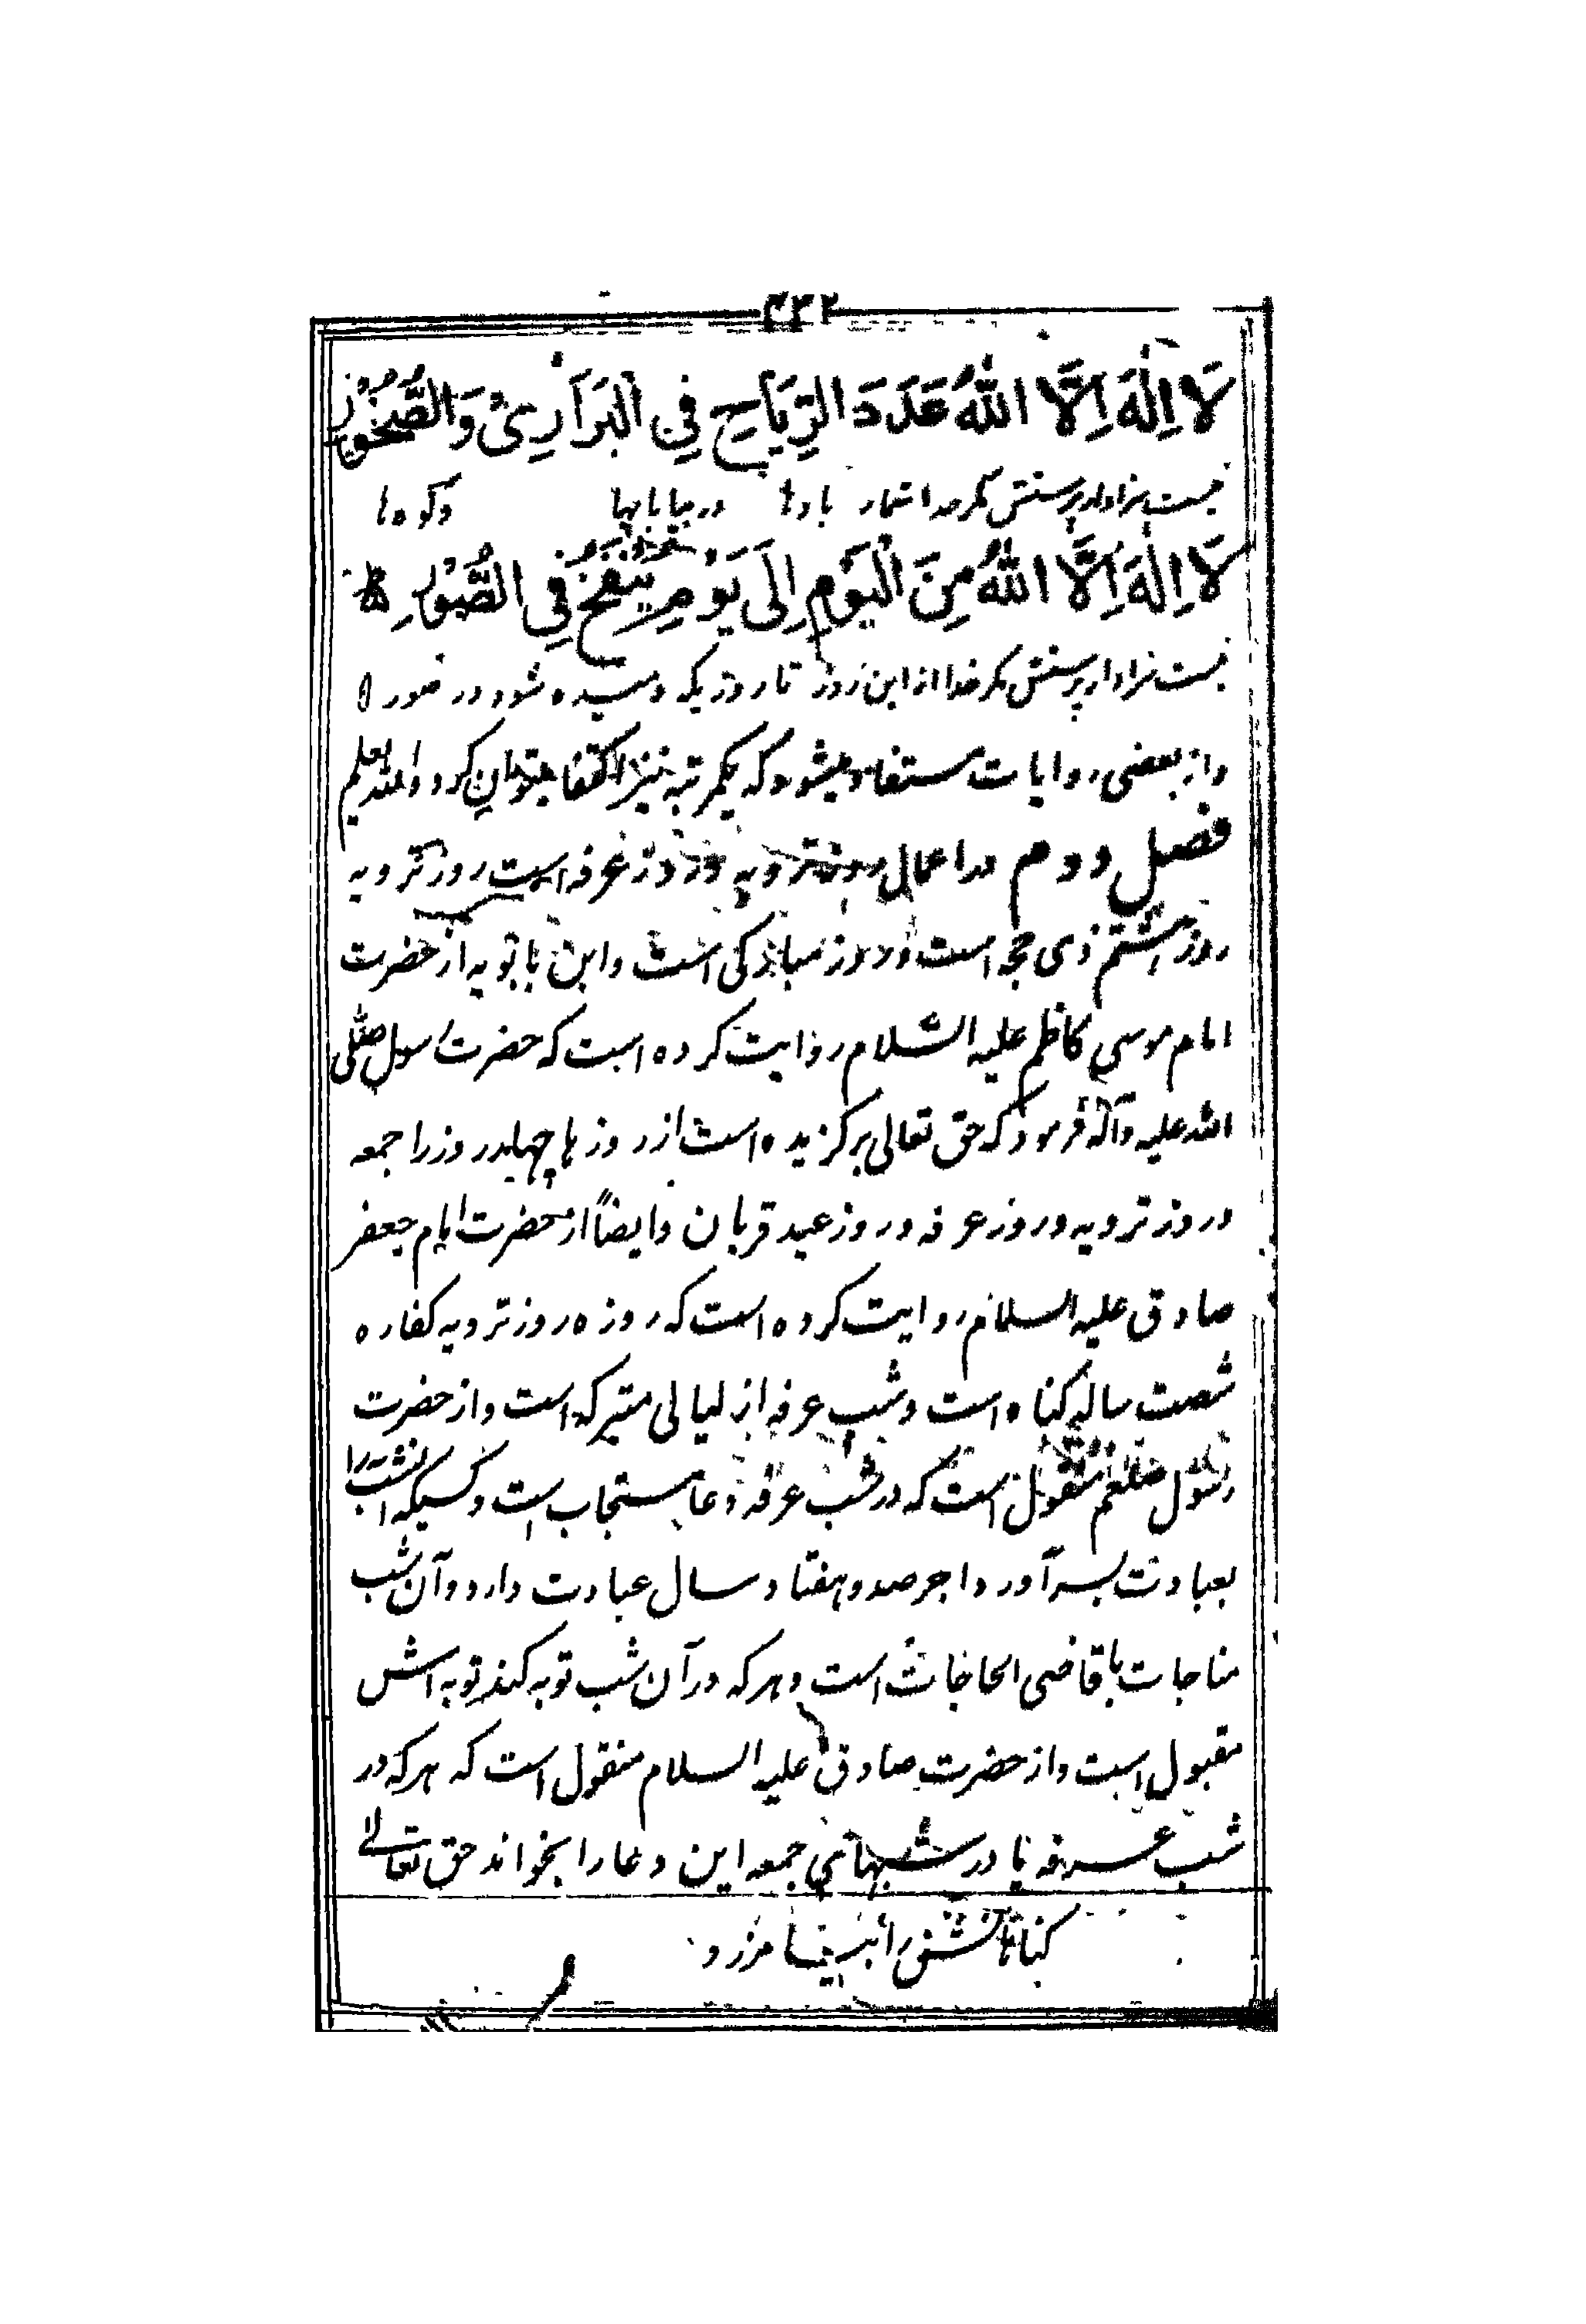 ۴۳۲
لَا اِلٰهَ اِلَّا اللّٰهُ عَدَدَ الرِّيَاحِ فِي الْبَرَارِيْ وَالصُّخُوْرِ
نیست سزاوار پرستش مگر خدا شمار بادها در بیابانها و کوه ها
لَا اِلٰهَ اِلَّا اللّٰهُ مِنَ الْيَوْمِ اِلَى يَوْمِ يُنْفَخُ فِي الصُّوْرِ
نیست سزاوار پرستش مگر خدا از این روز تا روزیکه دمیده شود در صور
واز بعضی روایات مستفاد میشود که یکمرتبه نیز اکتفا میتوان کرد والله یعلم
فصل دوم در اعمال روز ترویه وروز عرفه است روز ترویه
روز هشتم ذی حجه است وروز مبارکی است وابن بابویه از حضرت
امام موسی کاظم علیه السلام روایت کرده است که حضرت رسول صلی
الله علیه وآله فرمود که حق تعالی برگزیده است از روزها چهار روز را جمعه
وروز ترویه وروز عرفه وروز عید قربان وایضاً از حضرت امام جعفر
صادق علیه السلام روایت کرده است که روزه روز ترویه کفاره
شصت ساله گناه است وشب عرفه از لیالی متبرکه است واز حضرت
رسول صلعم منقول است که در شب عرفه دعا مستجاب است وکسیکه آنشب را
بعبادت بسر آورد اجر صد وهفتاد سال عبادت دارد وآن شب
مناجات با قاضی الحاجات است وهرکه در آن شب توبه کند توبه اش
مقبول است واز حضرت صادق علیه السلام منقول است که هرکه در
شب عرفه یا در شبهای جمعه این دعا را بخواند حق تعالی
گناهانش را بیامرزد